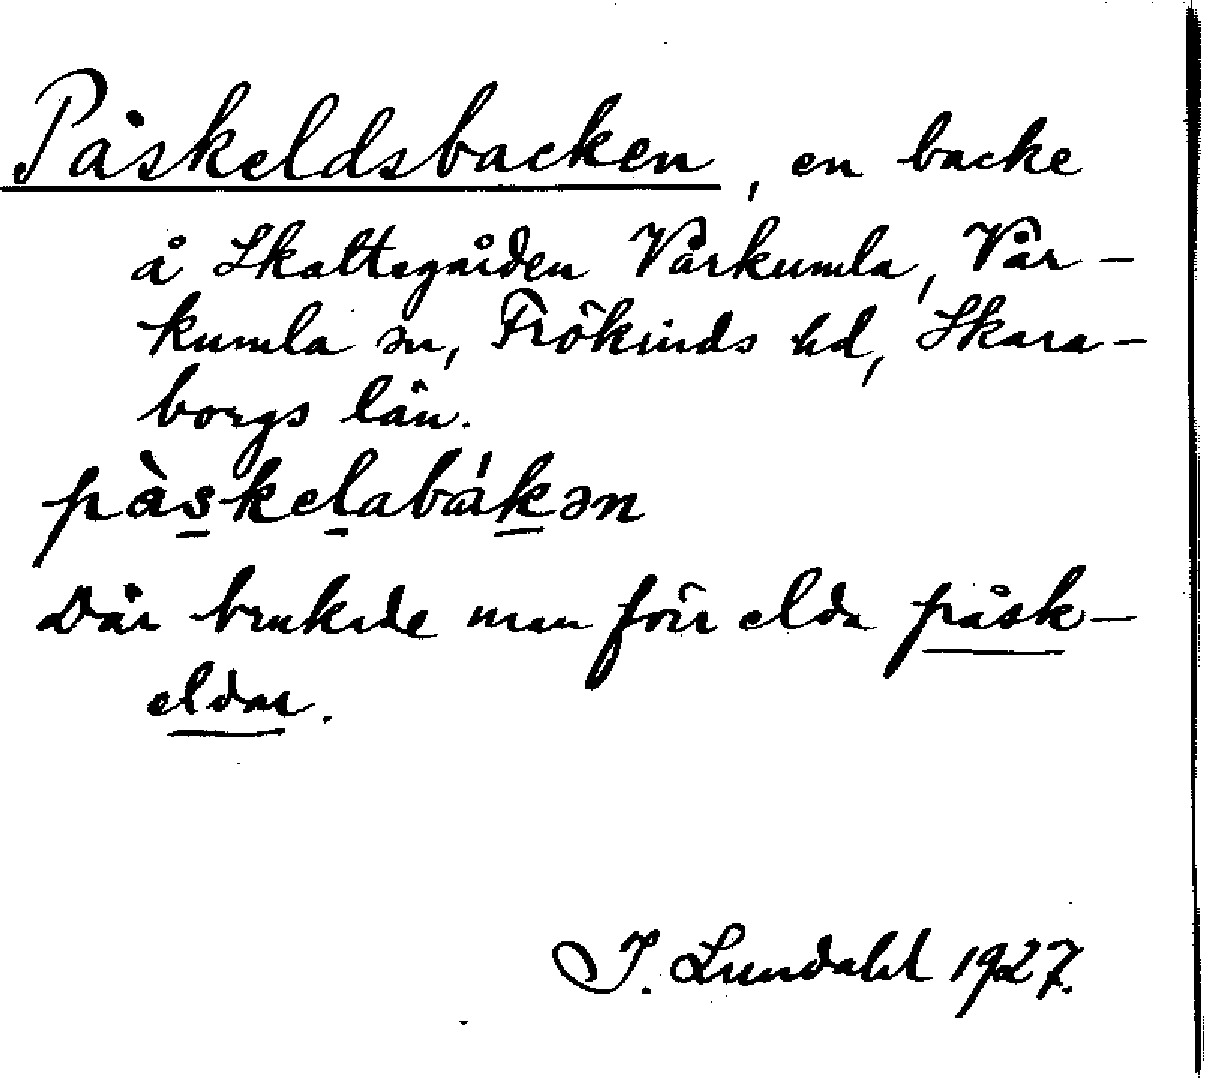 Påskeldsbacken, en backe
å Skattegården Vårkumla, Vår-
kumla sn, Frökinds hd, Skara-
borgs län.
pàskelabákən
Där brukade man förr elda påsk-
eldar.
I. Lundahl 1927.